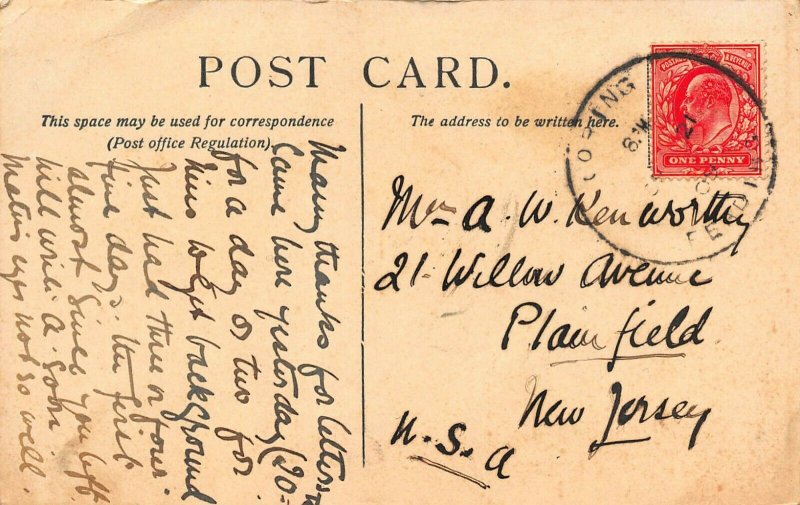 POST CARD.
This space may be used for correspondence
(Post office Regulation).
The address to be written here.
POSTAGE & REVENUE
ONE PENNY
Mrs A. W. Kenworthy
21 Willow Avenue
Plainfield
New Jersey
U.S.A
Many thanks for letters
Came here yesterday (20-
for a day or two for
to get background
Just had three or four
fine days. the first
almost since you left
Will write A. soon
eyes not so well.